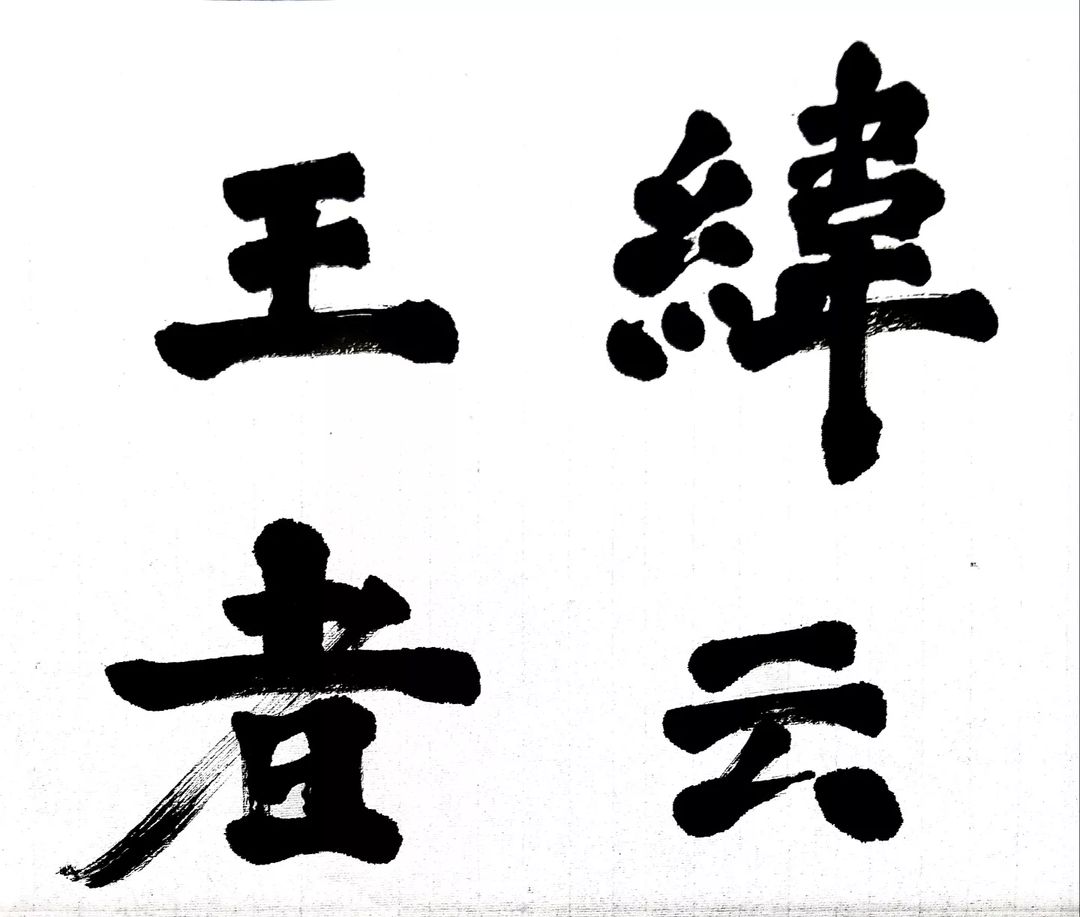 緯云
王者